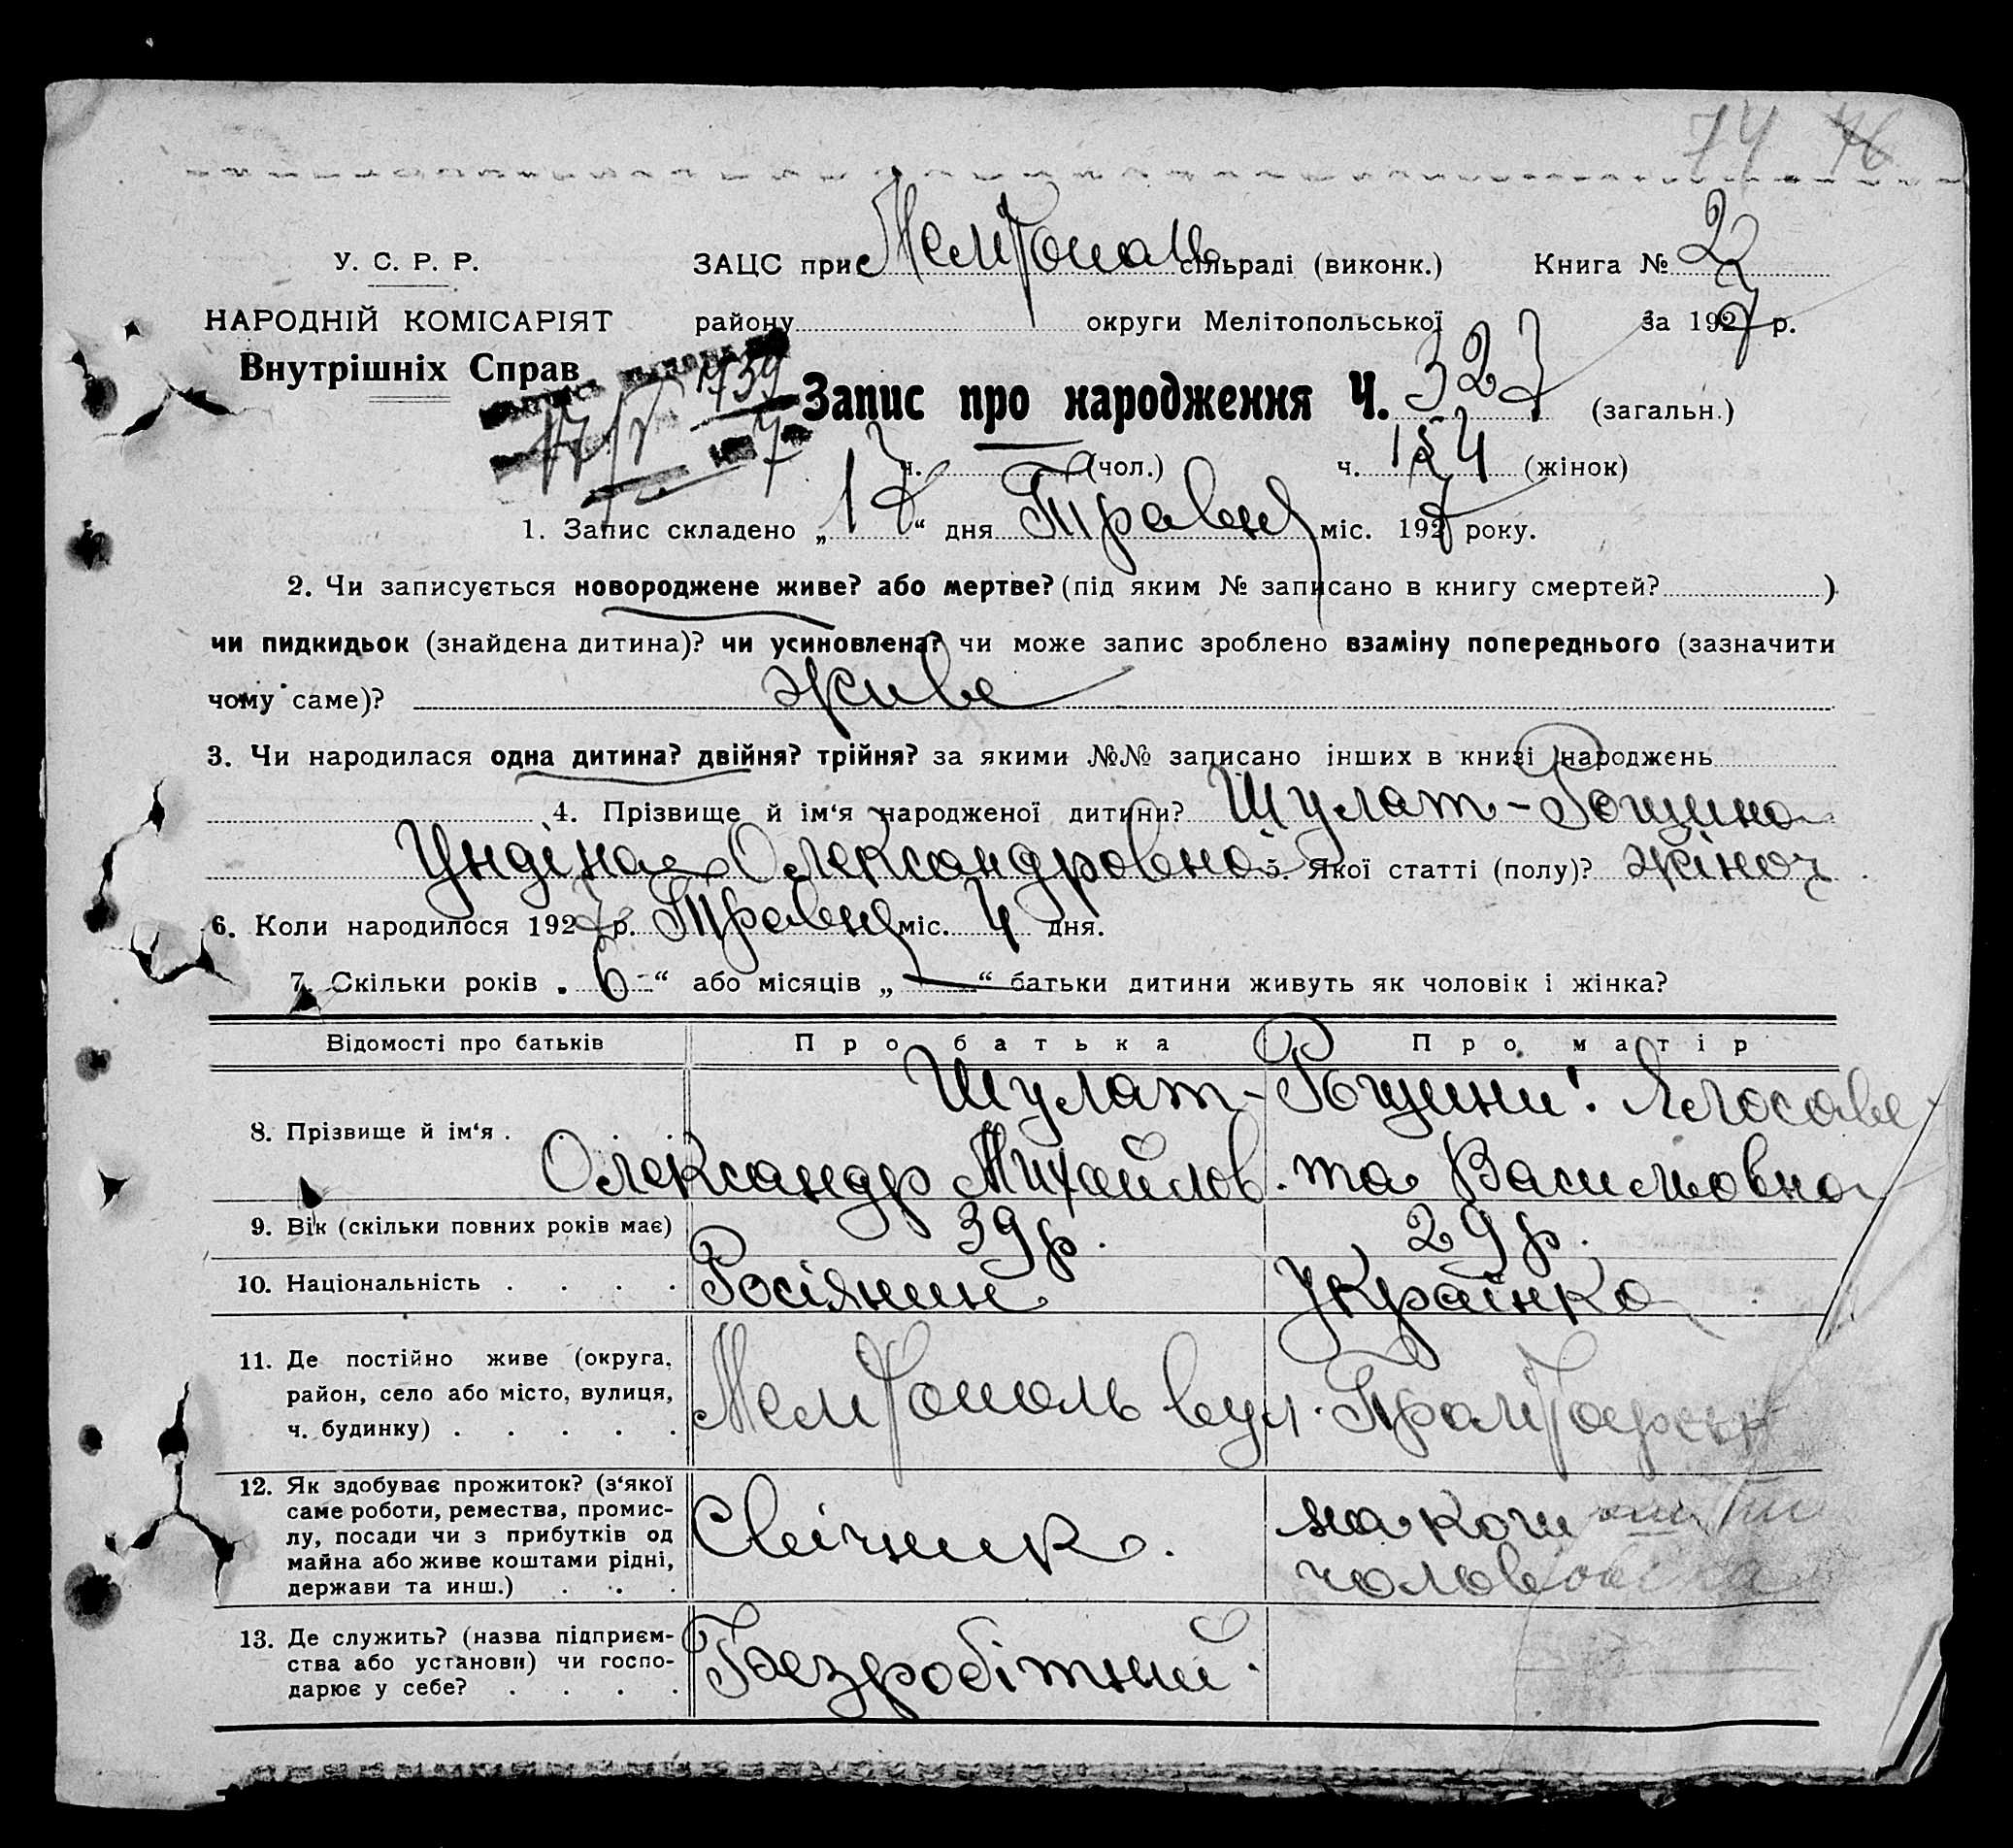 74 76
У. С. Р. Р.
ЗАЦС при Мелітопол сільраді (виконк.) Книга № 2
НАРОДНІЙ КОМІСАРІЯТ
району округи Мелітопольської За 1927 р.
Внутрішніх Справ
1739
17/V 7
Запис про народження Ч. 327 (загальн.)
ч. (чол.) ч. 154 (жінок)
1. Запис складено „17“ дня Травня міс. 1927 року.
2. Чи записується новороджене живе? або мертве? (під яким № записано в книгу смертей? )
чи пидкидьок (знайдена дитина)? чи усиновлена? чи може запис зроблено взаміну попереднього (зазначити
чому саме)? живе
3. Чи народилася одна дитина? двійня? трійня? за якими №№ записано інших в книзі народжень
4. Прізвище й ім‘я народженої дитини? Шулат-Рощина
Ундіна Олександровна 5. Якої статті (полу)? жіноч
6. Коли народилося 1927 р. Травня міс. 4 дня.
7. Скільки років „6“ або місяців „—“ батьки дитини живуть як чоловік і жінка?
Відомості про батьків Про батька Про матір
8. Прізвище й ім‘я . Шулат-Рощини: Єлосаве
Олександр Михайлов. та Васильовна
9. Вік (скільки повних років має) 39 р. 29 р.
10. Національність . . . . Росіянин Українка
11. Де постійно живе (округа,
район, село або місто, вулиця,
ч. будинку) . . . . . Мелітополь вул.
12. Як здобуває прожиток? (з‘якої
саме роботи, ремества, промис-
лу, посади чи з прибутків од
майна або живе коштами рідні,
держави та инш.) . . . на кошти
чоловіка
13. Де служить? (назва підприєм-
ства або установи) чи госпо-
дарює у себе? . . . . Безробітний.